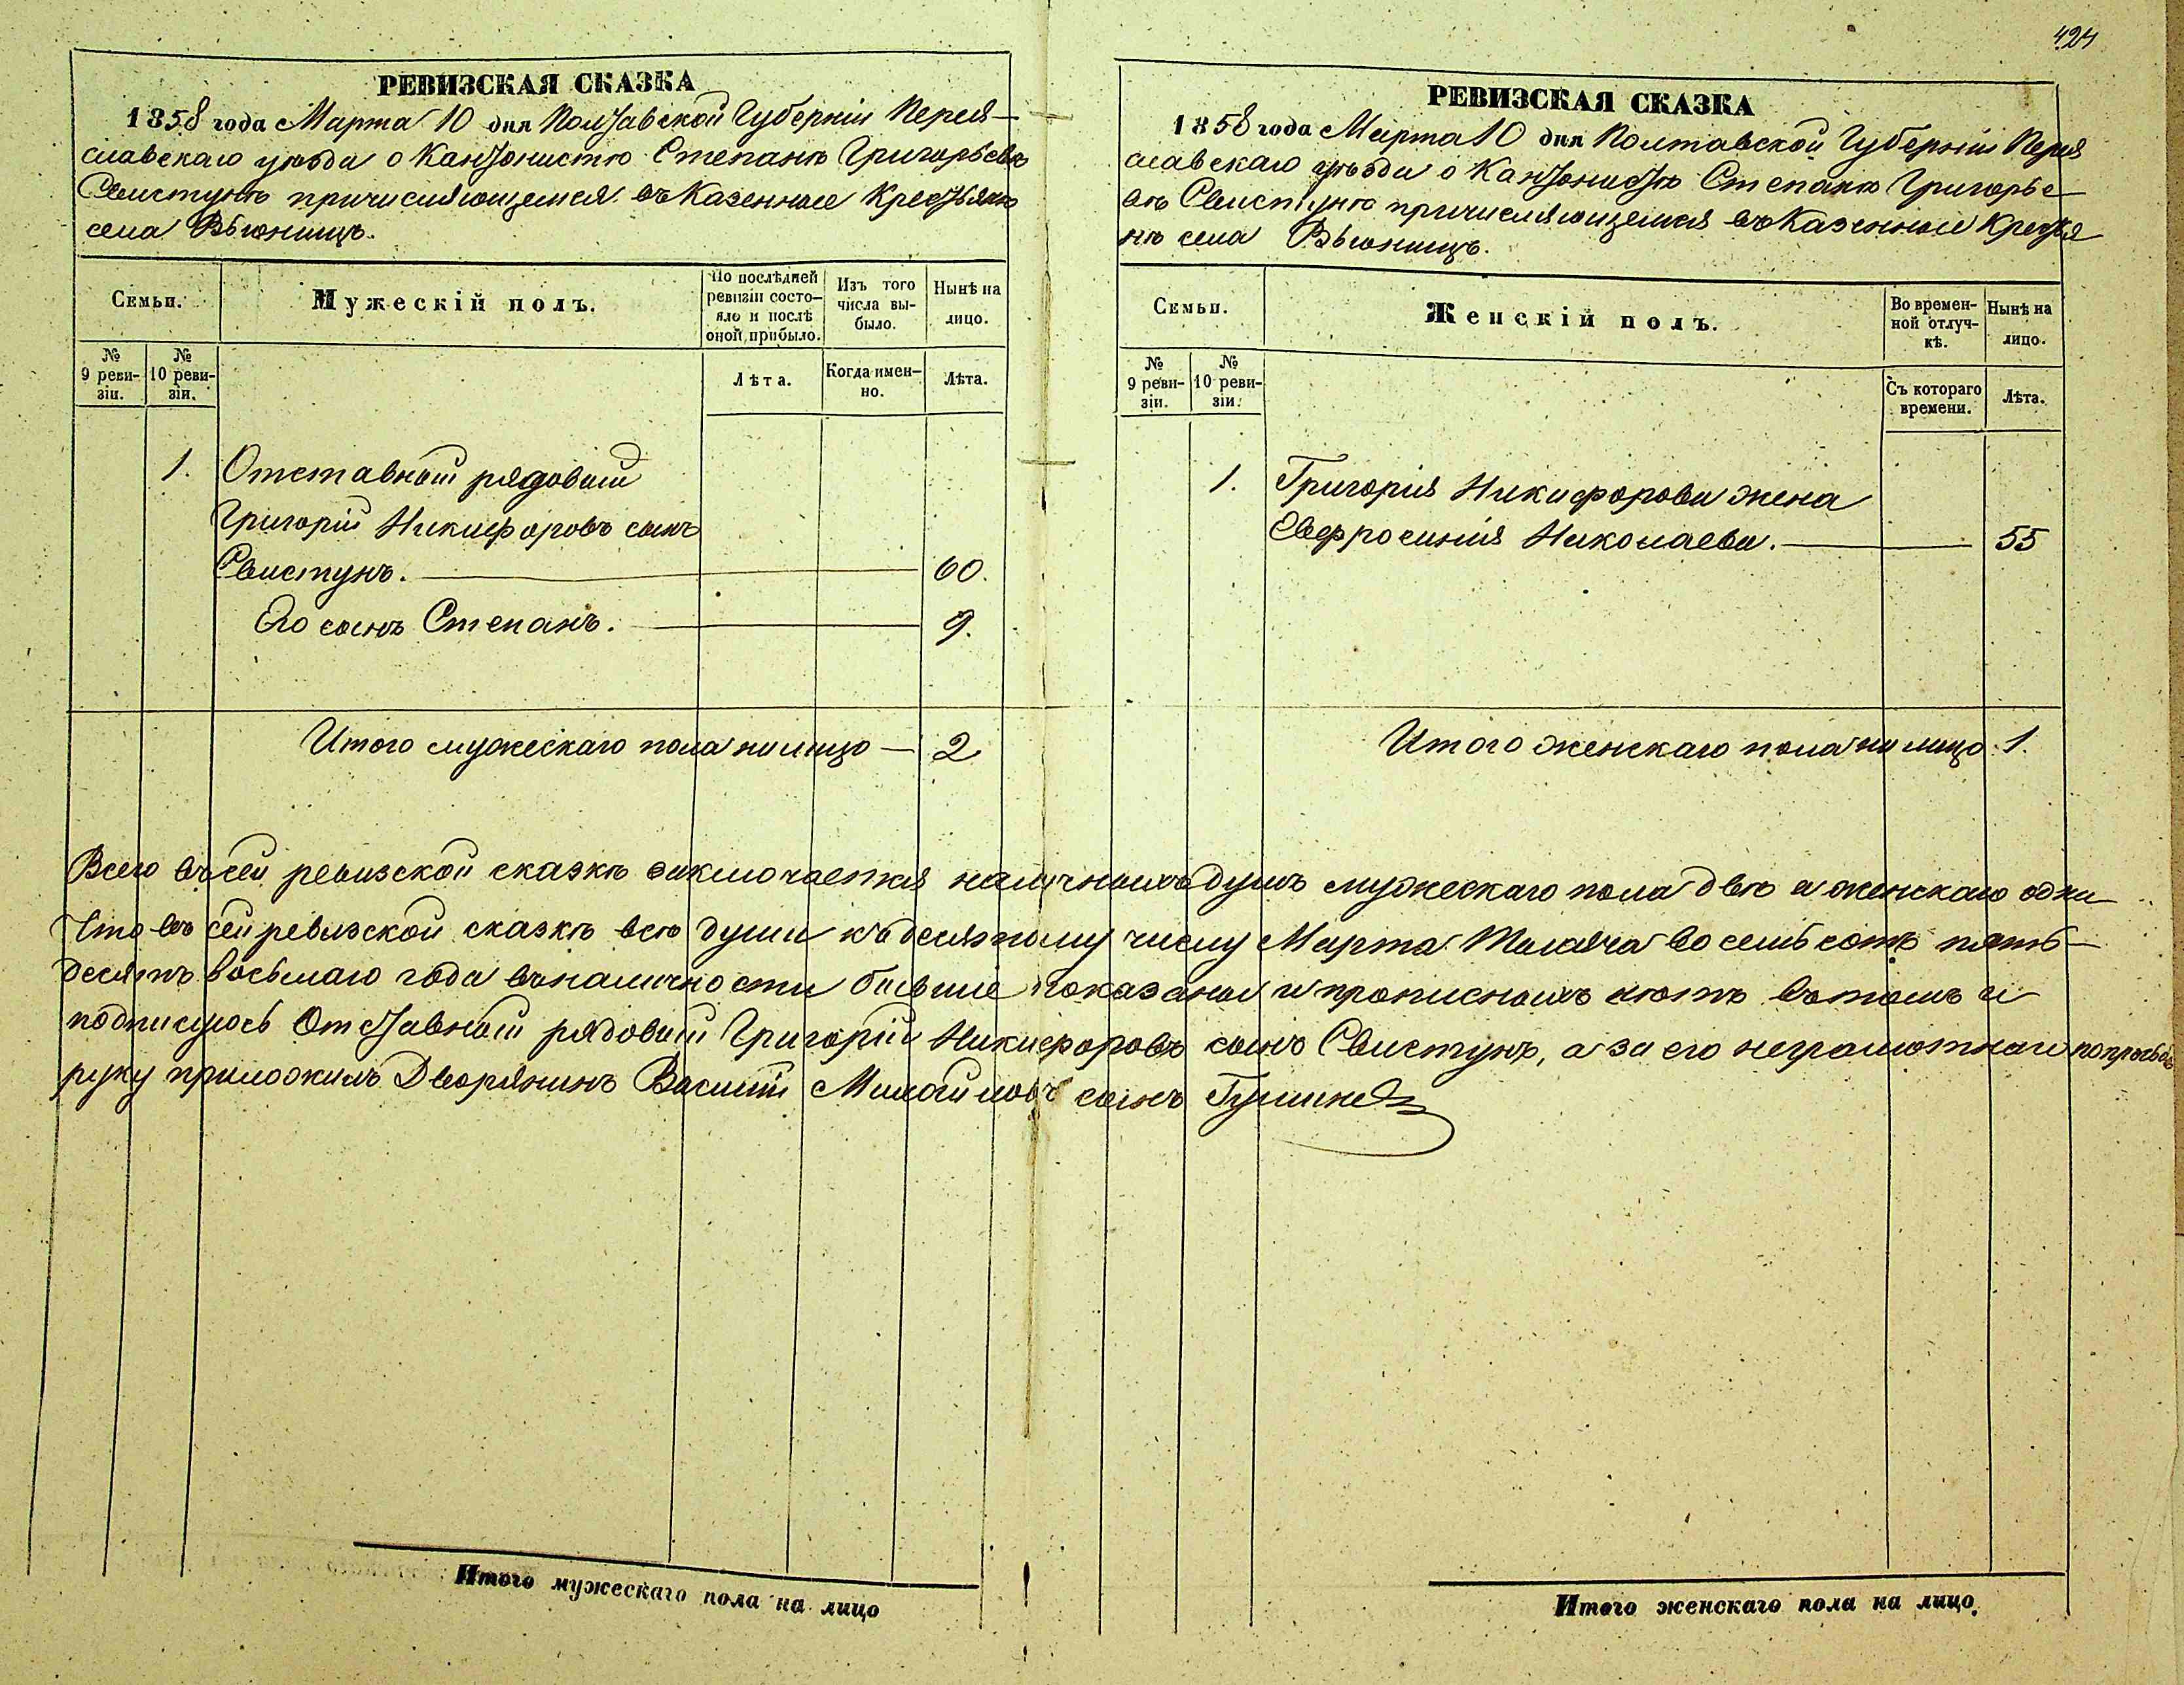 424
РЕВИЗСКАЯ СКАЗКА
1858 года Марта 10 дня Полтавской Губерніи Перея-
славскаго уѣзда о Кантонистѣ Степанѣ Григорьевѣ
Свистунѣ причисляющемся въ Казенные Крестьяне
села Вьюнищъ.
Семьи.
Мужескій полъ.
По послѣдней ревизіи состо-
яло и послѣ оной прибыло.
Изъ того числа вы-
было.
Нынѣ на лицо.
№ 9 реви-
зіи.
№ 10 реви-
зіи.
Лѣта.
Когда имен-
но.
Лѣта.
1. Отставный рядовый
Григорій Никифоровъ сынъ
Свистунъ. 60.
Его сынъ Степанъ. 9.
Итого мужескаго пола на лицо — 2
РЕВИЗСКАЯ СКАЗКА
1858 года Марта 10 дня Полтавской Губерніи Перея
славскаго уѣзда о Кантонистѣ Степанѣ Григорье-
вѣ Свистунѣ причисляющемся въ Казенные Крестья
не села Вьюнищъ.
Семьи.
Женскій полъ.
Во времен-
ной отлуч-
кѣ.
Нынѣ на лицо.
№ 9 реви-
зіи.
№ 10 реви-
зіи.
Съ котораго времени.
Лѣта.
1. Григорія Никифорова жена
Евфросинія Николаева. 55
Итого женскаго пола на лицо 1.
Всего въ сей ревизской сказкѣ заключается наличныхъ душъ мужескаго пола двѣ а женскаго одна
Что въ сей ревизской сказкѣ всѣ души къ десятому числу Марта Тысяча восемьсотъ пять-
десятъ восьмаго года въ наличности бывшіе показаны и прописныхъ нѣтъ въ томъ и
подписуюсь Отставный рядовый Григорій Никифоровъ сынъ Свистунъ, а за его неграмотнаго по просьбѣ
руку приложилъ Дворянинъ Василій сынъ
Итого мужескаго пола на лицо
Итого женскаго пола на лицо.